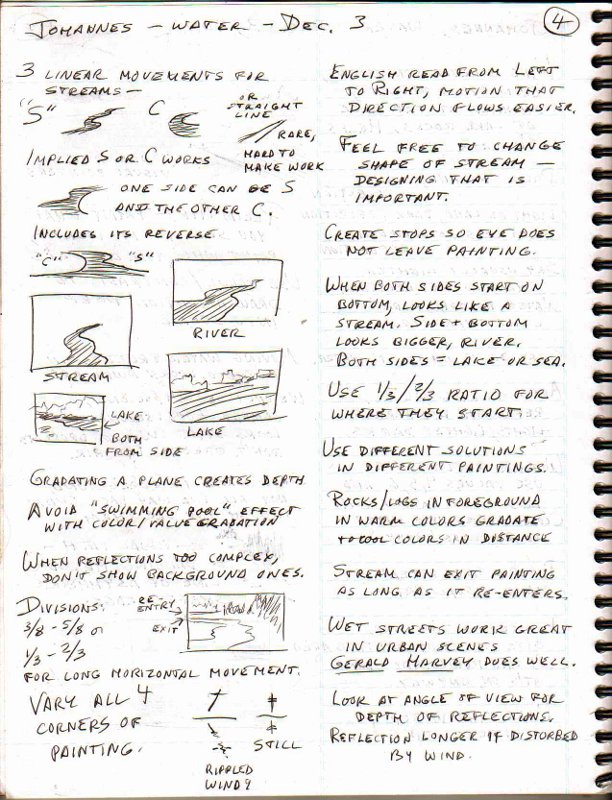 JOHANNES - WATER - DEC. 3
4
3 LINEAR MOVEMENTS FOR
STREAMS -
"S"
C
OR
STRAIGHT
LINE
RARE,
HARD TO
MAKE WORK
IMPLIED S OR C WORKS
ONE SIDE CAN BE S
AND THE OTHER C.
INCLUDES ITS REVERSE
"C"
"S"
RIVER
STREAM
LAKE
LAKE
BOTH
FROM SIDE
GRADATING A PLANE CREATES DEPTH
AVOID "SWIMMING POOL" EFFECT
WITH COLOR/VALUE GRADATION
WHEN REFLECTIONS TOO COMPLEX,
DON'T SHOW BACKGROUND ONES.
DIVISIONS:
3/8 - 5/8 OR
1/3 - 2/3
RE-
ENTRY
EXIT
FOR LONG HORIZONTAL MOVEMENT.
VARY ALL 4
CORNERS OF
PAINTING.
STILL
RIPPLED
WIND?
ENGLISH READ FROM LEFT
TO RIGHT, MOTION THAT
DIRECTION FLOWS EASIER.
FEEL FREE TO CHANGE
SHAPE OF STREAM -
DESIGNING THAT IS
IMPORTANT.
CREATE STOPS SO EYE DOES
NOT LEAVE PAINTING.
WHEN BOTH SIDES START ON
BOTTOM, LOOKS LIKE A
STREAM. SIDE + BOTTOM
LOOKS BIGGER, RIVER.
BOTH SIDES = LAKE OR SEA.
USE 1/3 / 2/3 RATIO FOR
WHERE THEY START.
USE DIFFERENT SOLUTIONS
IN DIFFERENT PAINTINGS.
ROCKS/LOGS IN FOREGROUND
IN WARM COLORS GRADATE
TO COOL COLORS IN DISTANCE
STREAM CAN EXIT PAINTING
AS LONG AS IT RE-ENTERS.
WET STREETS WORK GREAT
IN URBAN SCENES
GERALD HARVEY DOES WELL.
LOOK AT ANGLE OF VIEW FOR
DEPTH OF REFLECTIONS.
REFLECTION LONGER IF DISTORBED
BY WIND.